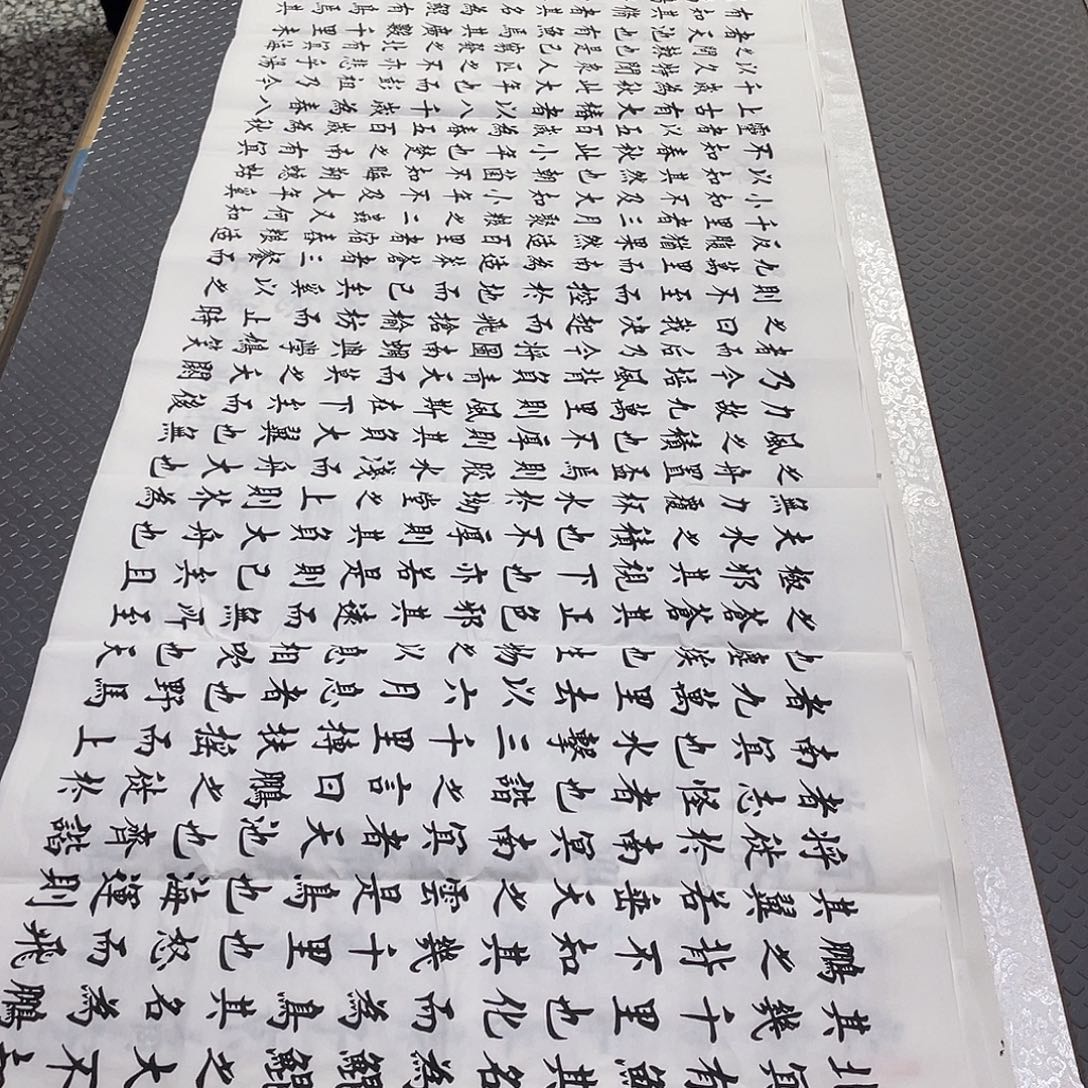 北冥有魚其名為鯤鯤之大不
其幾千里也化而為鳥其名為鵬
鵬之背不知其幾千里也怒而飛
其翼若垂天之雲是鳥也海運則
將徙於南冥南冥者天池也齊諧
者志怪者也諧之言曰鵬之徙於
南冥也水擊三千里摶扶搖而上
者九萬里去以六月息者也野馬
也塵埃也生物之以息相吹也天
之蒼蒼其正色邪其遠而無所至
極邪其視下也亦若是則已矣且
夫水之積也不厚則其負大舟也
無力覆杯水於坳堂之上則芥為
之舟置杯焉則膠水淺而舟大也
風之積也不厚則其負大翼也無
力故九萬里則風斯在下矣而後
乃今培風背負青天而莫之夭閼
者而後乃今將圖南蜩與學鳩笑
之曰我決起而飛搶榆枋而止時
則不至而控於地而已矣奚以之
九萬里而南為適莽蒼者三餐而
反腹猶果然適百里者宿舂糧適
千里者三月聚糧之二蟲又何知
小知不及大知小年不及大年奚
以知其然也朝菌不知晦朔蟪蛄
不知春秋此小年也楚之南有冥
靈者以五百歲為春五百歲為秋
上古有大椿者以八千歲為春八
千歲為秋此大年也而彭祖乃今
以久特聞眾人匹之不亦悲乎湯
之問棘也是已窮髮之北有冥海
者天池也有魚焉其廣數千里未
有知其脩者其名為鯤有鳥焉其